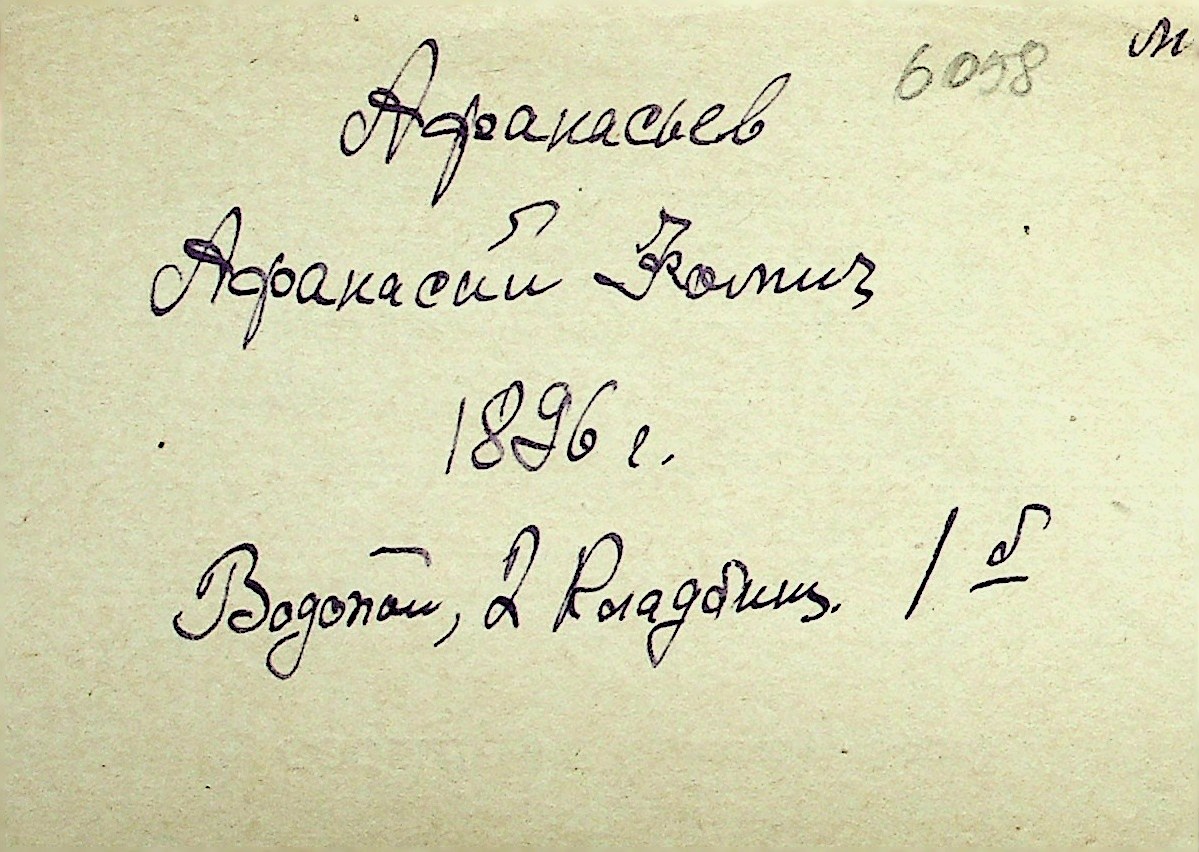 6098 м
Афанасьев
Афанасий Фомич
1896 г.
Водопой, 2 Кладбищ. 1 б